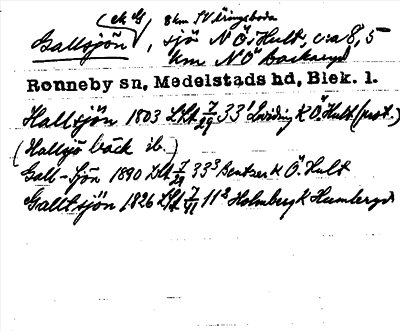 (ek G) 8 km SV Eringsboda
Gallsjön, sjö N Ö. Hult, c:a 8,5
km NÖ Backaryd
Ronneby sn, Medelstads hd, Blek. l.
Hallsjön 1803 LKt 7/29 33¹ K Ö. Hult
(Hallsjö bäck ib.)
Gall-sjön 1890 LKt 7/29 33³ Bentzer K Ö. Hult
Galltsjön 1826 LKt 7/41 11² Holmberg K Humleryd